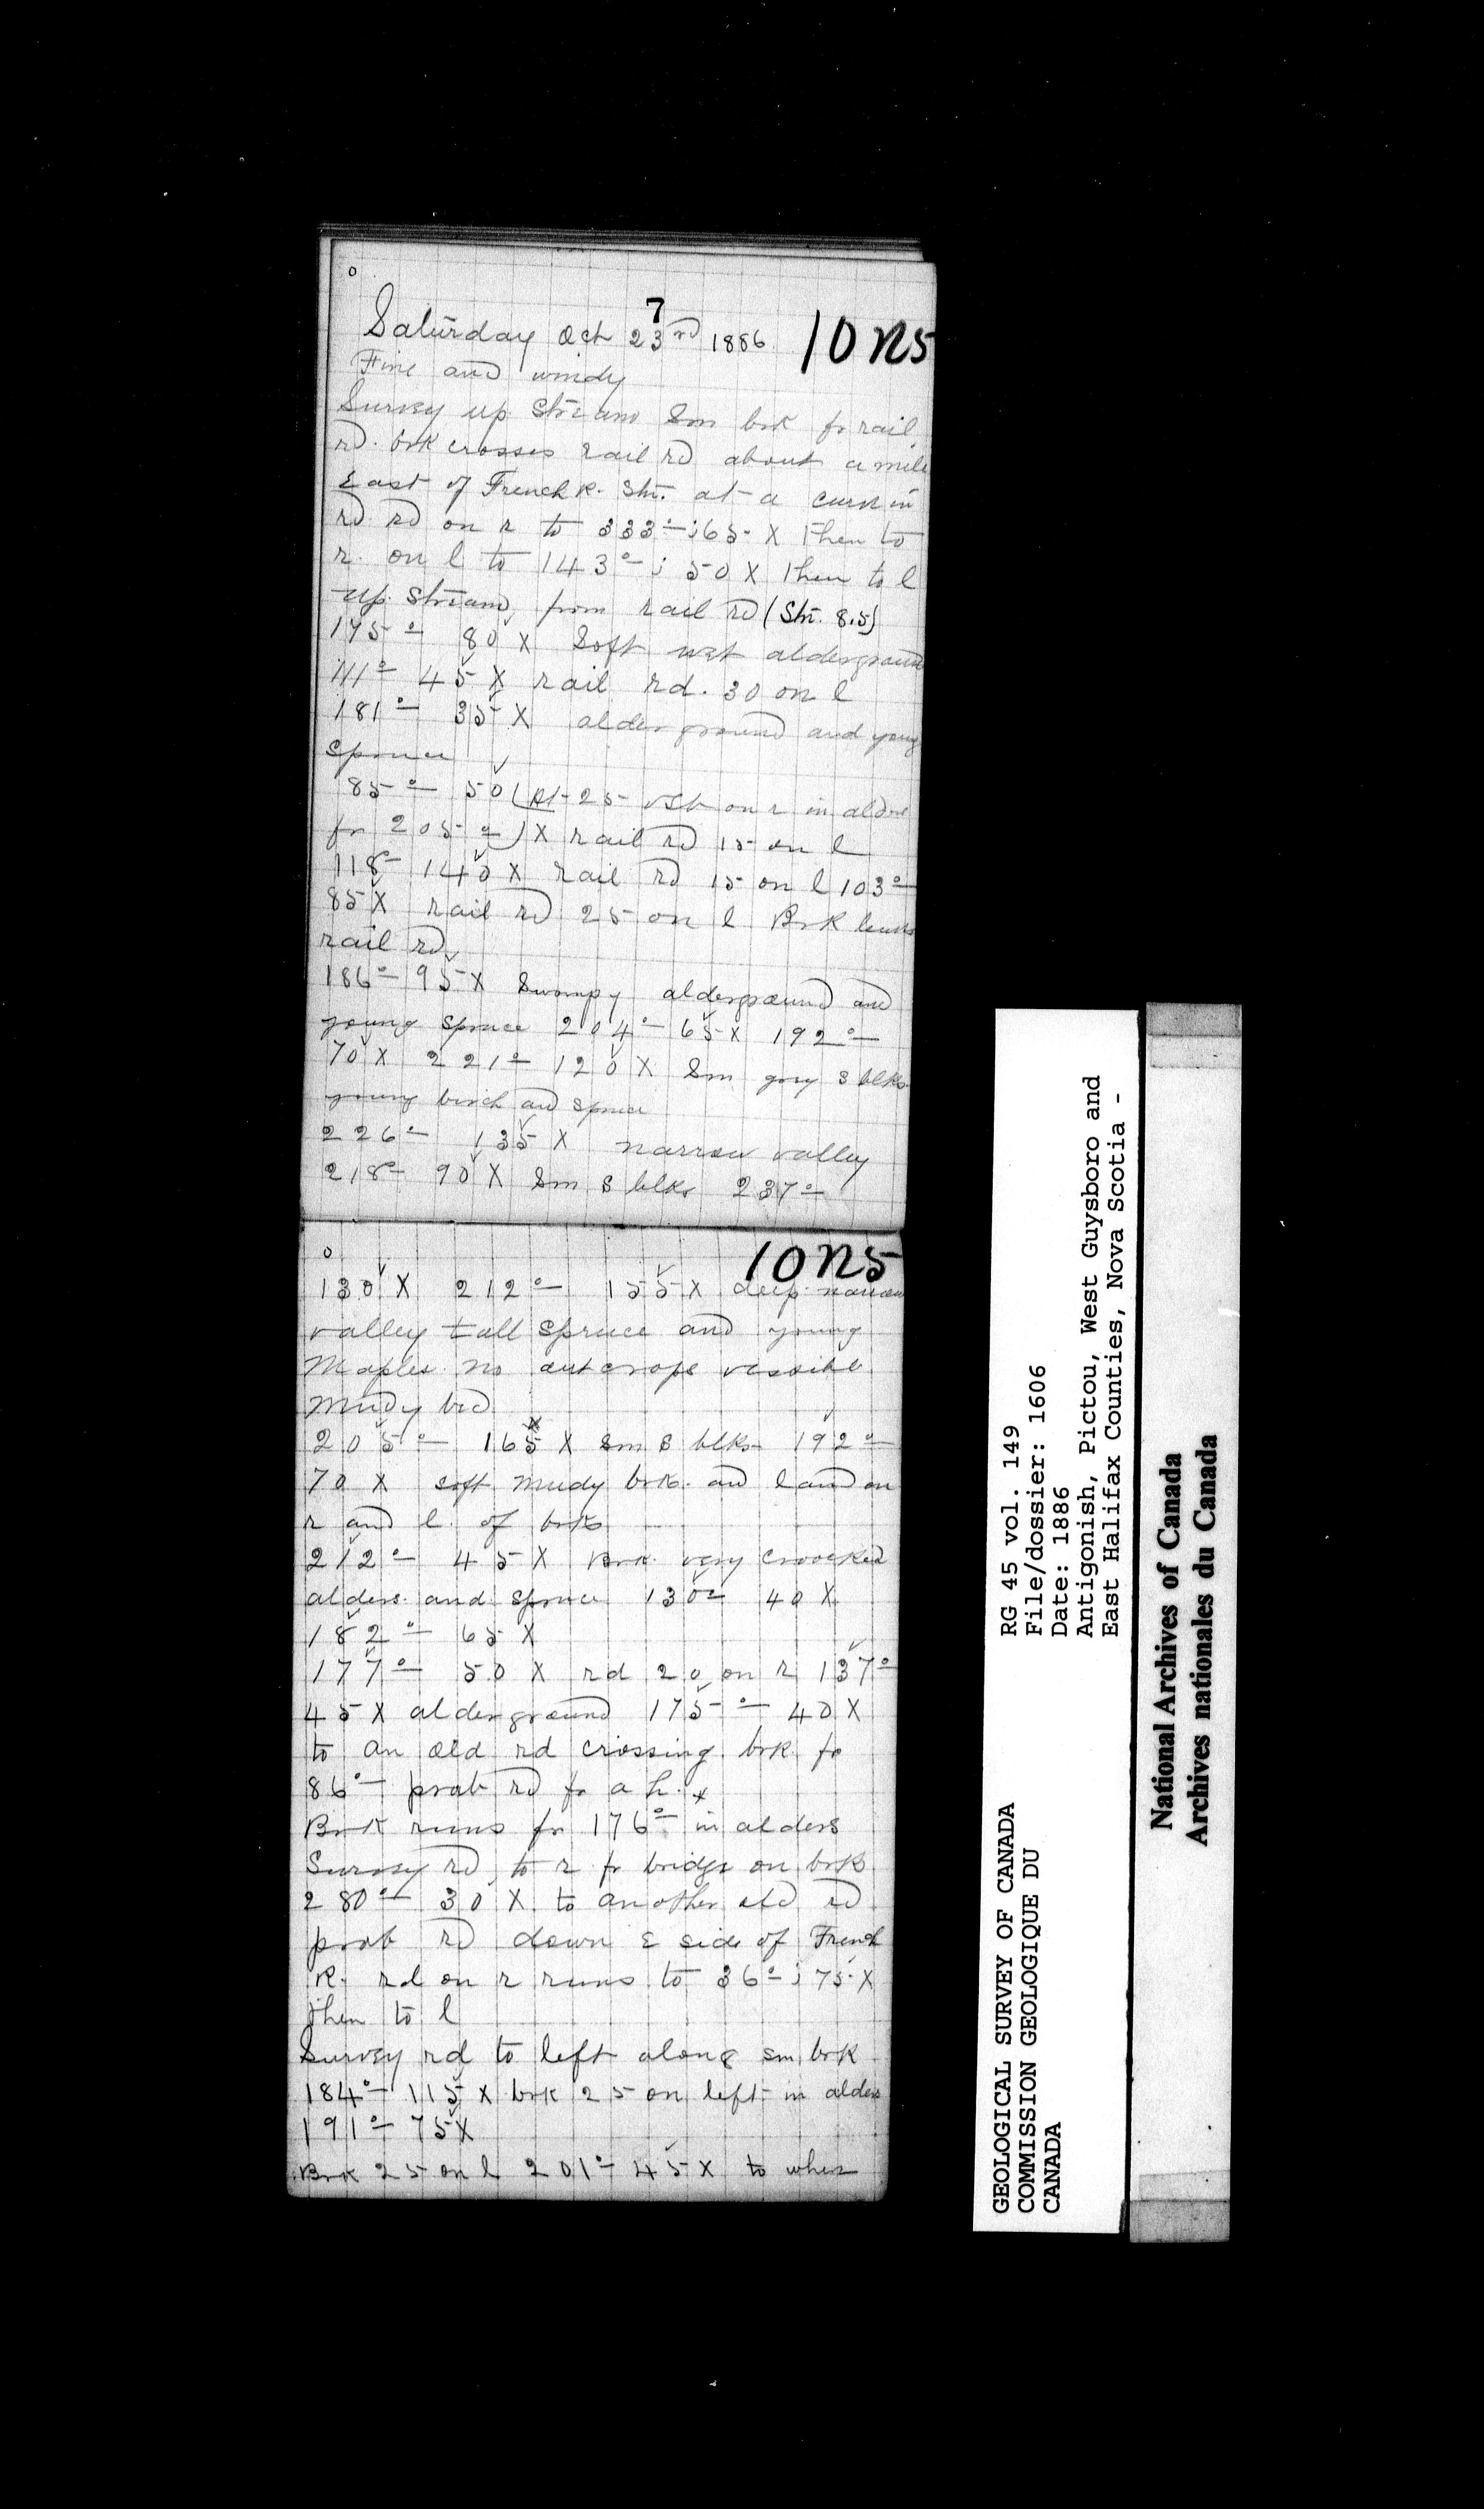 7
Saturday Oct 23rd 1886 10 N5
Fine and windy
Survey up Stream Sm brk fr rail
rd. brk crosses rail rd about a mile
East of French R. Stn. at a curve in
rd rd on r to 333°; 65 X then to
r. on l to 143°; 50 X then to l
up Stream from rail rd (Stn. 8.5)
175° 80 X Soft wet alderground
111° 45 X rail rd. 30 on l
181° 35 X alder ground and young
Spruce
85° 50 (At 25 on r in alders
fr 205°) X rail rd 15 on l
118° 140 X rail rd 15 on l 103°
85 X rail rd 25 on l Brk leaves
rail rd
186° 95 X Swampy alderground and
young Spruce 204° 65 X 192°
70 X 221° 120 X Sm grey S blks
young birch and spruce
226° 135 X narrow valley
218° 90 X Sm S blks 237°
10 N5
130 X 212° 155 X deep narrow
valley tall Spruce and young
Maples. No outcrops vissible
Mudy bed
205° 165 X Sm S blks 192°
70 X soft mudy brk. and land on
r and l. of brk
212° 45 X Brk. very crooked
alders. and spruce 130° 40 X
182° 65 X
177° 50 X rd 20 on r 137°
45 X alderground 175° 40 X
to an old rd crossing brk. fr
86° prob rd fr a h. x
Brk runs fr 176° in alders
Survey rd, to r fr bridge on brk
280° 30 X to another old rd
prob rd down E side of French
R. rd on r runs to 36°; 75 X
then to l
Survey rd to left along sm brk
184° 115 X brk 25 on left in alders
191° 75 X
Brk 25 on l 201° 45 X to where
GEOLOGICAL SURVEY OF CANADA
COMMISSION GEOLOGIQUE DU
CANADA
RG 45 vol. 149
File/dossier: 1606
Date: 1886
Antigonish, Pictou, West Guysboro and
East Halifax Counties, Nova Scotia -
National Archives of Canada
Archives nationales du Canada